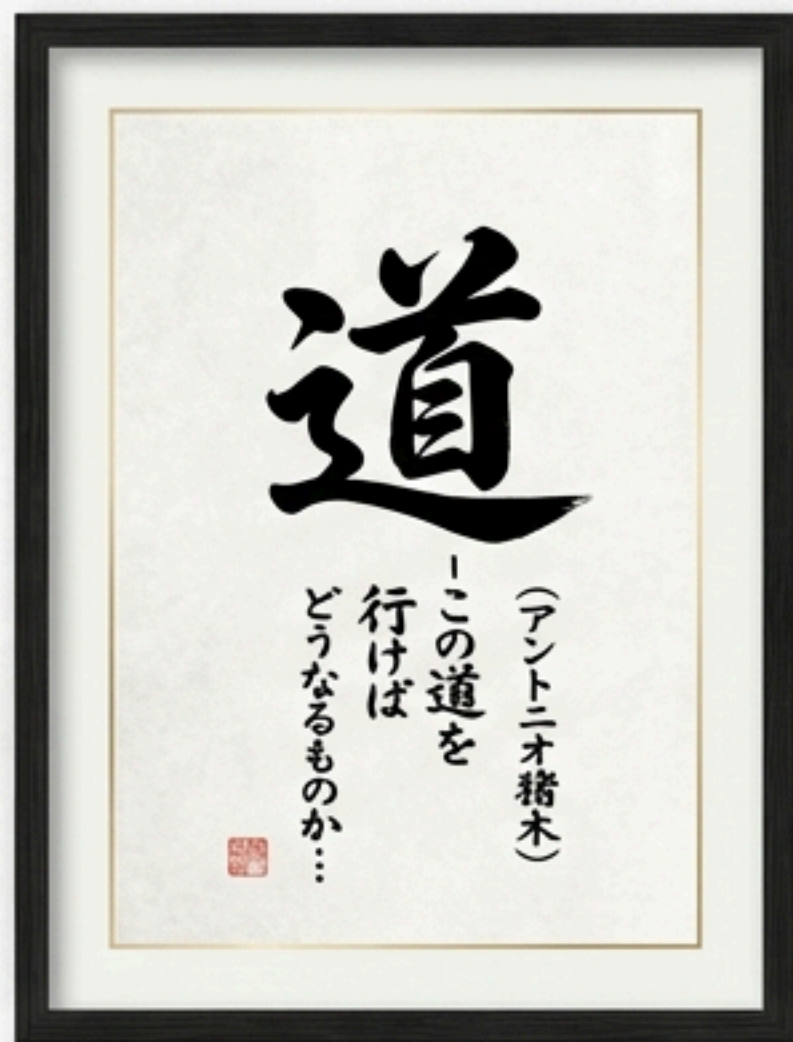 道
(アントニオ猪木)
-この道を
行けば
どうなるものか…